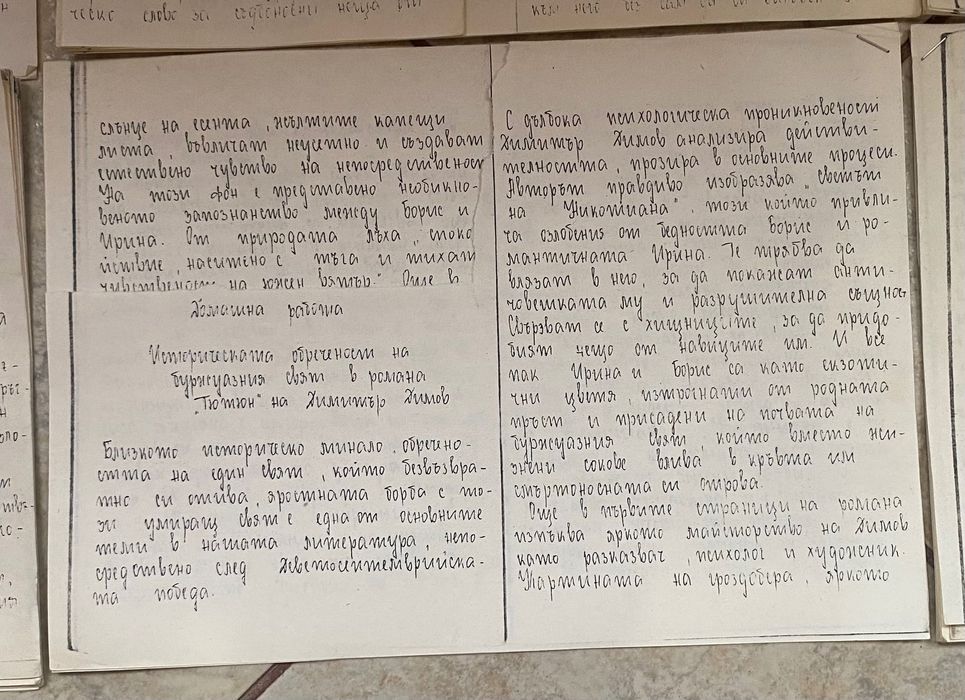 ческо слово за съдбовни неща от
към него
слънце на есента, жълтите капещи
листа, въвличат неусетно и създават
естествено чувство на непосредственост
На този фон е представено необикно-
веното запознанство между Борис и
Ирина. От природата лъха „спокой
ствие, наситено с тъга и тихата
чувственост на южен вятър." Още в
Домашна работа
Историческата обреченост на
буржуазния свят в романа
„Тютюн" на Димитър Димов
Близкото историческо минало, обречено-
стта на един свят, който безвъзвра-
тно си отива, яростната борба с то-
зи умиращ свят е една от основните
теми в нашата литература, непо-
средствено след Деветосептемврийска-
та победа.
С дълбока психологическа проникновеност
Димитър Димов анализира действи-
телността, прозира в основните процеси.
Авторът правдиво изобразява „светът
на „Никотиана", този който привли-
ча озлобения от бедността Борис и ро-
мантичната Ирина. Те трябва да
влязат в него, за да покажат анти-
човешката му и разрушителна същност
Свързват се с хищниците, за да придо-
бият нещо от навиците им. И все
пак Ирина и Борис са като екзоти-
чни цветя, изтръгнати от родната
пръст и присадени на почвата на
буржуазния свят, който вместо жи-
знени сокове влива в кръвта им
смъртоносната си отрова.
Още в първите страници на романа
изпъква яркото майсторство на Димов
като разказвач, психолог и художник.
Картината на гроздобера, яркото